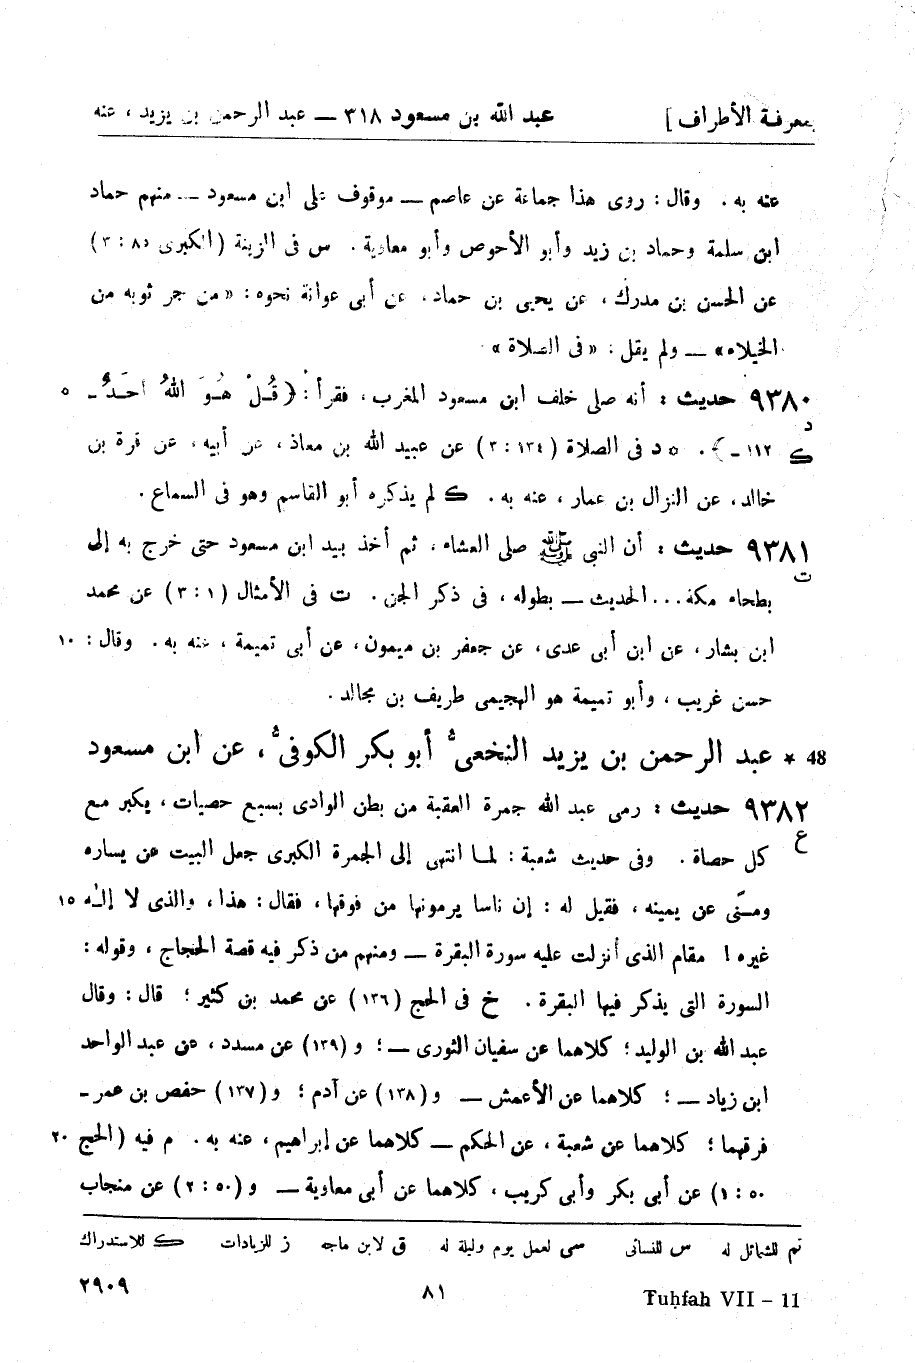 بمعرفة الأطراف ] عبد الله بن مسعود ٣١٨ ــ عبد الرحمن بن يزيد ، عنه
عنه به . وقال : روى هذا جماعة عن عاصم ــ موقوف على ابن مسعود ــ منهم حماد
ابن سلمة وحماد بن زيد وأبو الأحوص وأبو معاوية . س فى الزينة (الكبرى ٨٥ : ٣)
عن الحسن بن مدرك ، عن يحيى بن حماد ، عن أبى عوانة نحوه : «من جر ثوبه من
الخيلاء» ــ ولم يقل : «فى الصلاة» .
٩٣٨٠ حديث : أنه صلى خلف ابن مسعود المغرب ، فقرأ : { قُلْ هُوَ اللهُ أَحَدٌ ــ ٥
د
ك ١١٢ ــ } . ۞ د فى الصلاة (١٣٤ : ٣) عن عبيد الله بن معاذ ، عن أبيه ، عن قرة بن
خالد ، عن النزال بن عمار ، عنه به . ك لم يذكره أبو القاسم وهو فى السماع .
٩٣٨١ حديث : أن النبى ﷺ صلى العشاء ، ثم أخذ بيد ابن مسعود حتى خرج به إلى
ت
بطحاء مكة ... الحديث ــ بطوله ، فى ذكر الجن . ت فى الأمثال (١ : ٣) عن محمد
ابن بشار ، عن ابن أبى عدى ، عن جعفر بن ميمون ، عن أبى تميمة ، عنه به . وقال : ١٠
حسن غريب ، وأبو تميمة هو الهجيمى طريف بن مجالد .
48 * عبد الرحمن بن يزيد النخعىُّ أبو بكر الكوفىُّ ، عن ابن مسعود
٩٣٨٢ حديث : رمى عبد الله جمرة العقبة من بطن الوادى بسبع حصيات ، يكبر مع
ع
كل حصاة . وفى حديث شعبة : لما انتهى إلى الجمرة الكبرى جعل البيت عن يساره
ومنًى عن يمينه ، فقيل له : إن ناسا يرمونها من فوقها ، فقال : هذا ، والذى لا إلٰه ١٥
غيره ! مقام الذى أنزلت عليه سورة البقرة ــ ومنهم من ذكر فيه قصة الحجاج ، وقوله :
السورة التى يذكر فيها البقرة . خ فى الحج (١٣٦) عن محمد بن كثير ؛ قال : وقال
عبد الله بن الوليد ؛ كلاهما عن سفيان الثورى ــ ؛ و (١٣٩) عن مسدد ، عن عبد الواحد
ابن زياد ــ ؛ كلاهما عن الأعمش ــ و (١٣٨) عن آدم ؛ و (١٣٧) حفص بن عمر ــ
فرقهما ؛ كلاهما عن شعبة ، عن الحكم ــ كلاهما عن إبراهيم ، عنه به . م فيه (الحج ٢٠
٥٠ : ١) عن أبى بكر وأبى كريب ، كلاهما عن أبى معاوية ــ و (٥٠ : ٢) عن منجاب
تم للشمائل له س للنسائى سى لعمل يوم وليلة له ق لابن ماجه ز للزيادات ك للاستدراك
Tuḥfah VII – 11 ٨١ ٢٩٠٩